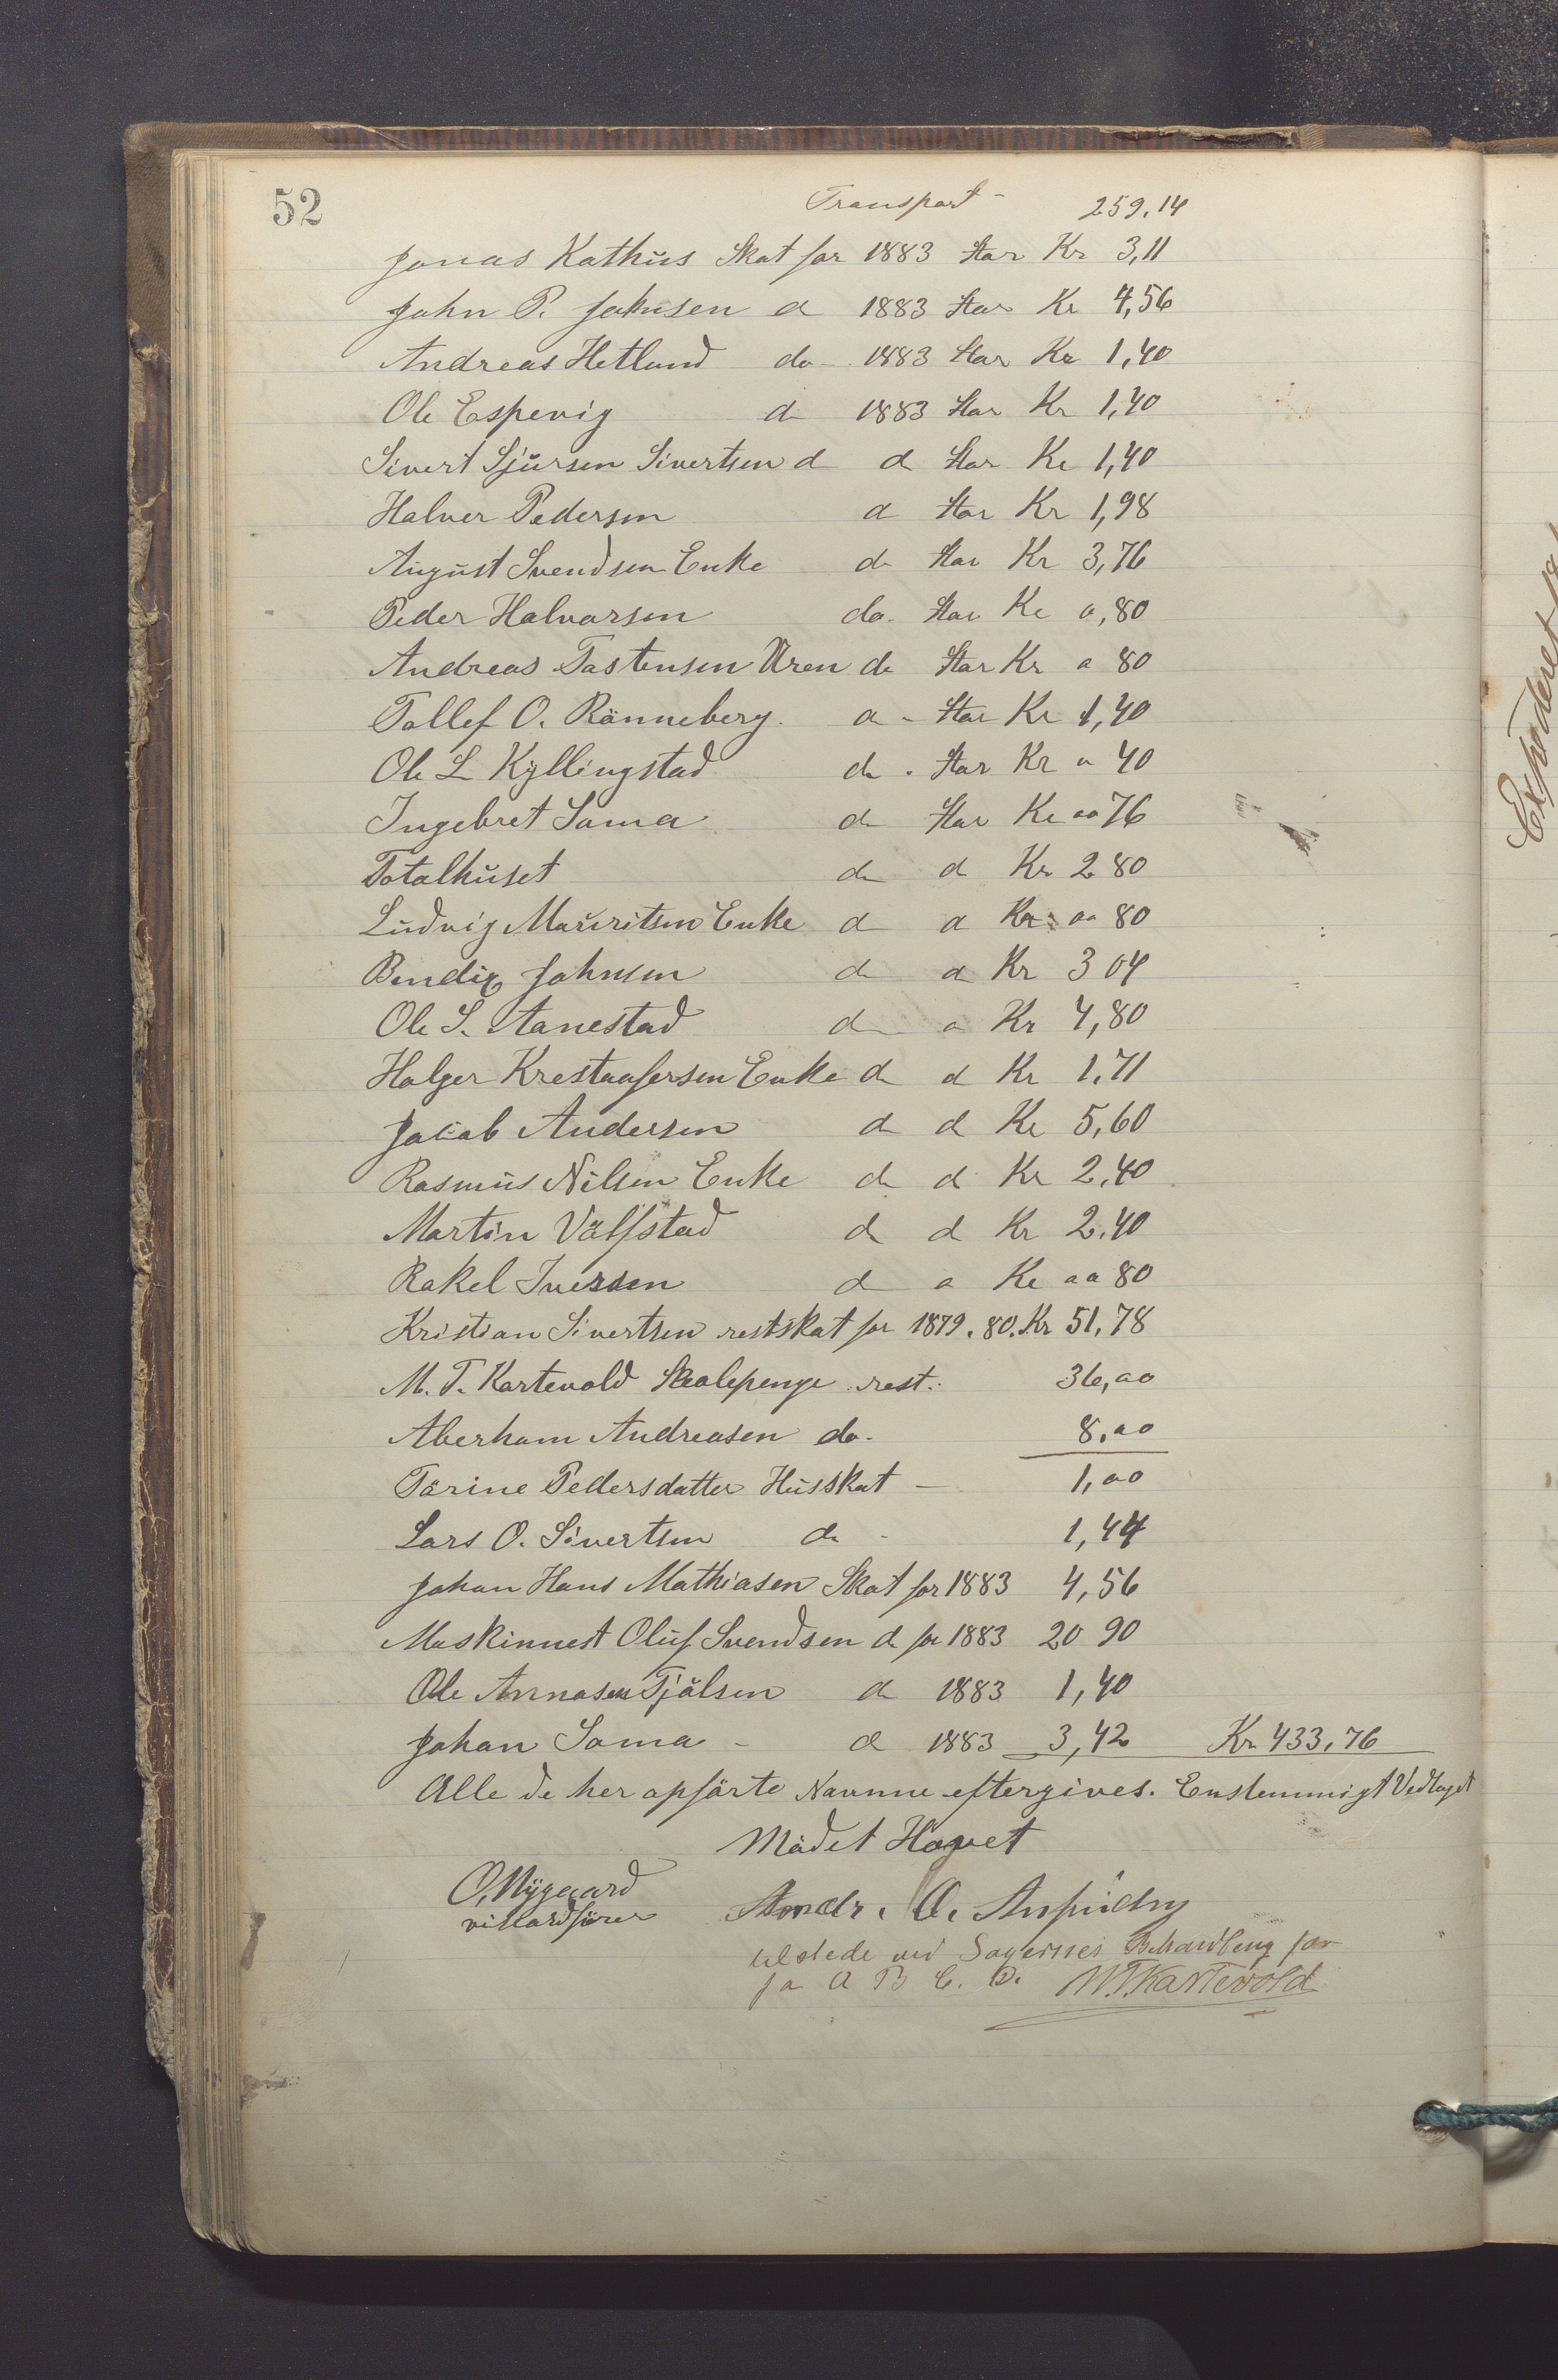 52
Transport - 259,14
Jonas Kathus Skat for 1883 star Kr 3,11
John P. Johnsen d 1883 star Kr 4,56
Andreas Hetland do 1883 star Kr 1,40
Ole Espevig d 1883 star Kr 1,40
Sivert Sjursen Sivertsen d d star Kr 1,40
Halver Pedersen d star Kr 1,98
August Svendsen Enke d star Kr 3,76
Peder Halvorsen do. star Kr 0,80
Andreas Tostensen Uren do star Kr 0 80
Tollef O. Rönneberg d - star Kr 1,40
Ole L Kyllingstad do . star Kr 0 40
Ingebret Soma d star Kr 00 76
Totalhuset d d Kr 2 80
Ludvig Mauritsen Enke d d Kr 00 80
Bendix Johnsen d d Kr 3 04
Ole S. Aanestad d d Kr 4,80
Holger Krestaafersen Enke d d Kr 1,71
Jacob Andersen d d Kr 5,60
Rasmus Nilsen Enke d d Kr 2,40
Martin Völstad d d Kr 2,40
Rakel Iversen d d Kr 00 80
Kristian Sivertsen restskat for 1879.80. Kr 51,78
M. T. Kartevold Skolepenge rest. 36,00
Aberham Andreasen do. 8,00
Torine Pedersdatter Husskat - 1,00
Lars O. Sivertsen do - 1,44
Johan Hans Mathiasen Skat for 1883 4,56
Maskinnest Oluf Svendsen d for 1883 20 90
Ole Annasen Tjölsen d 1883 1,40
Johan Soma - d 1883 3,42 Kr 433,76
Alle de her opförte Navnne eftergives. Enstemmigt Vedtaget
Mödet Hævet
O. Nygaard
viseordförer
Andr. O.
tilstede ved Sagernes Behandling for
fa A B C. D. M.T.Kartevold
Expederet